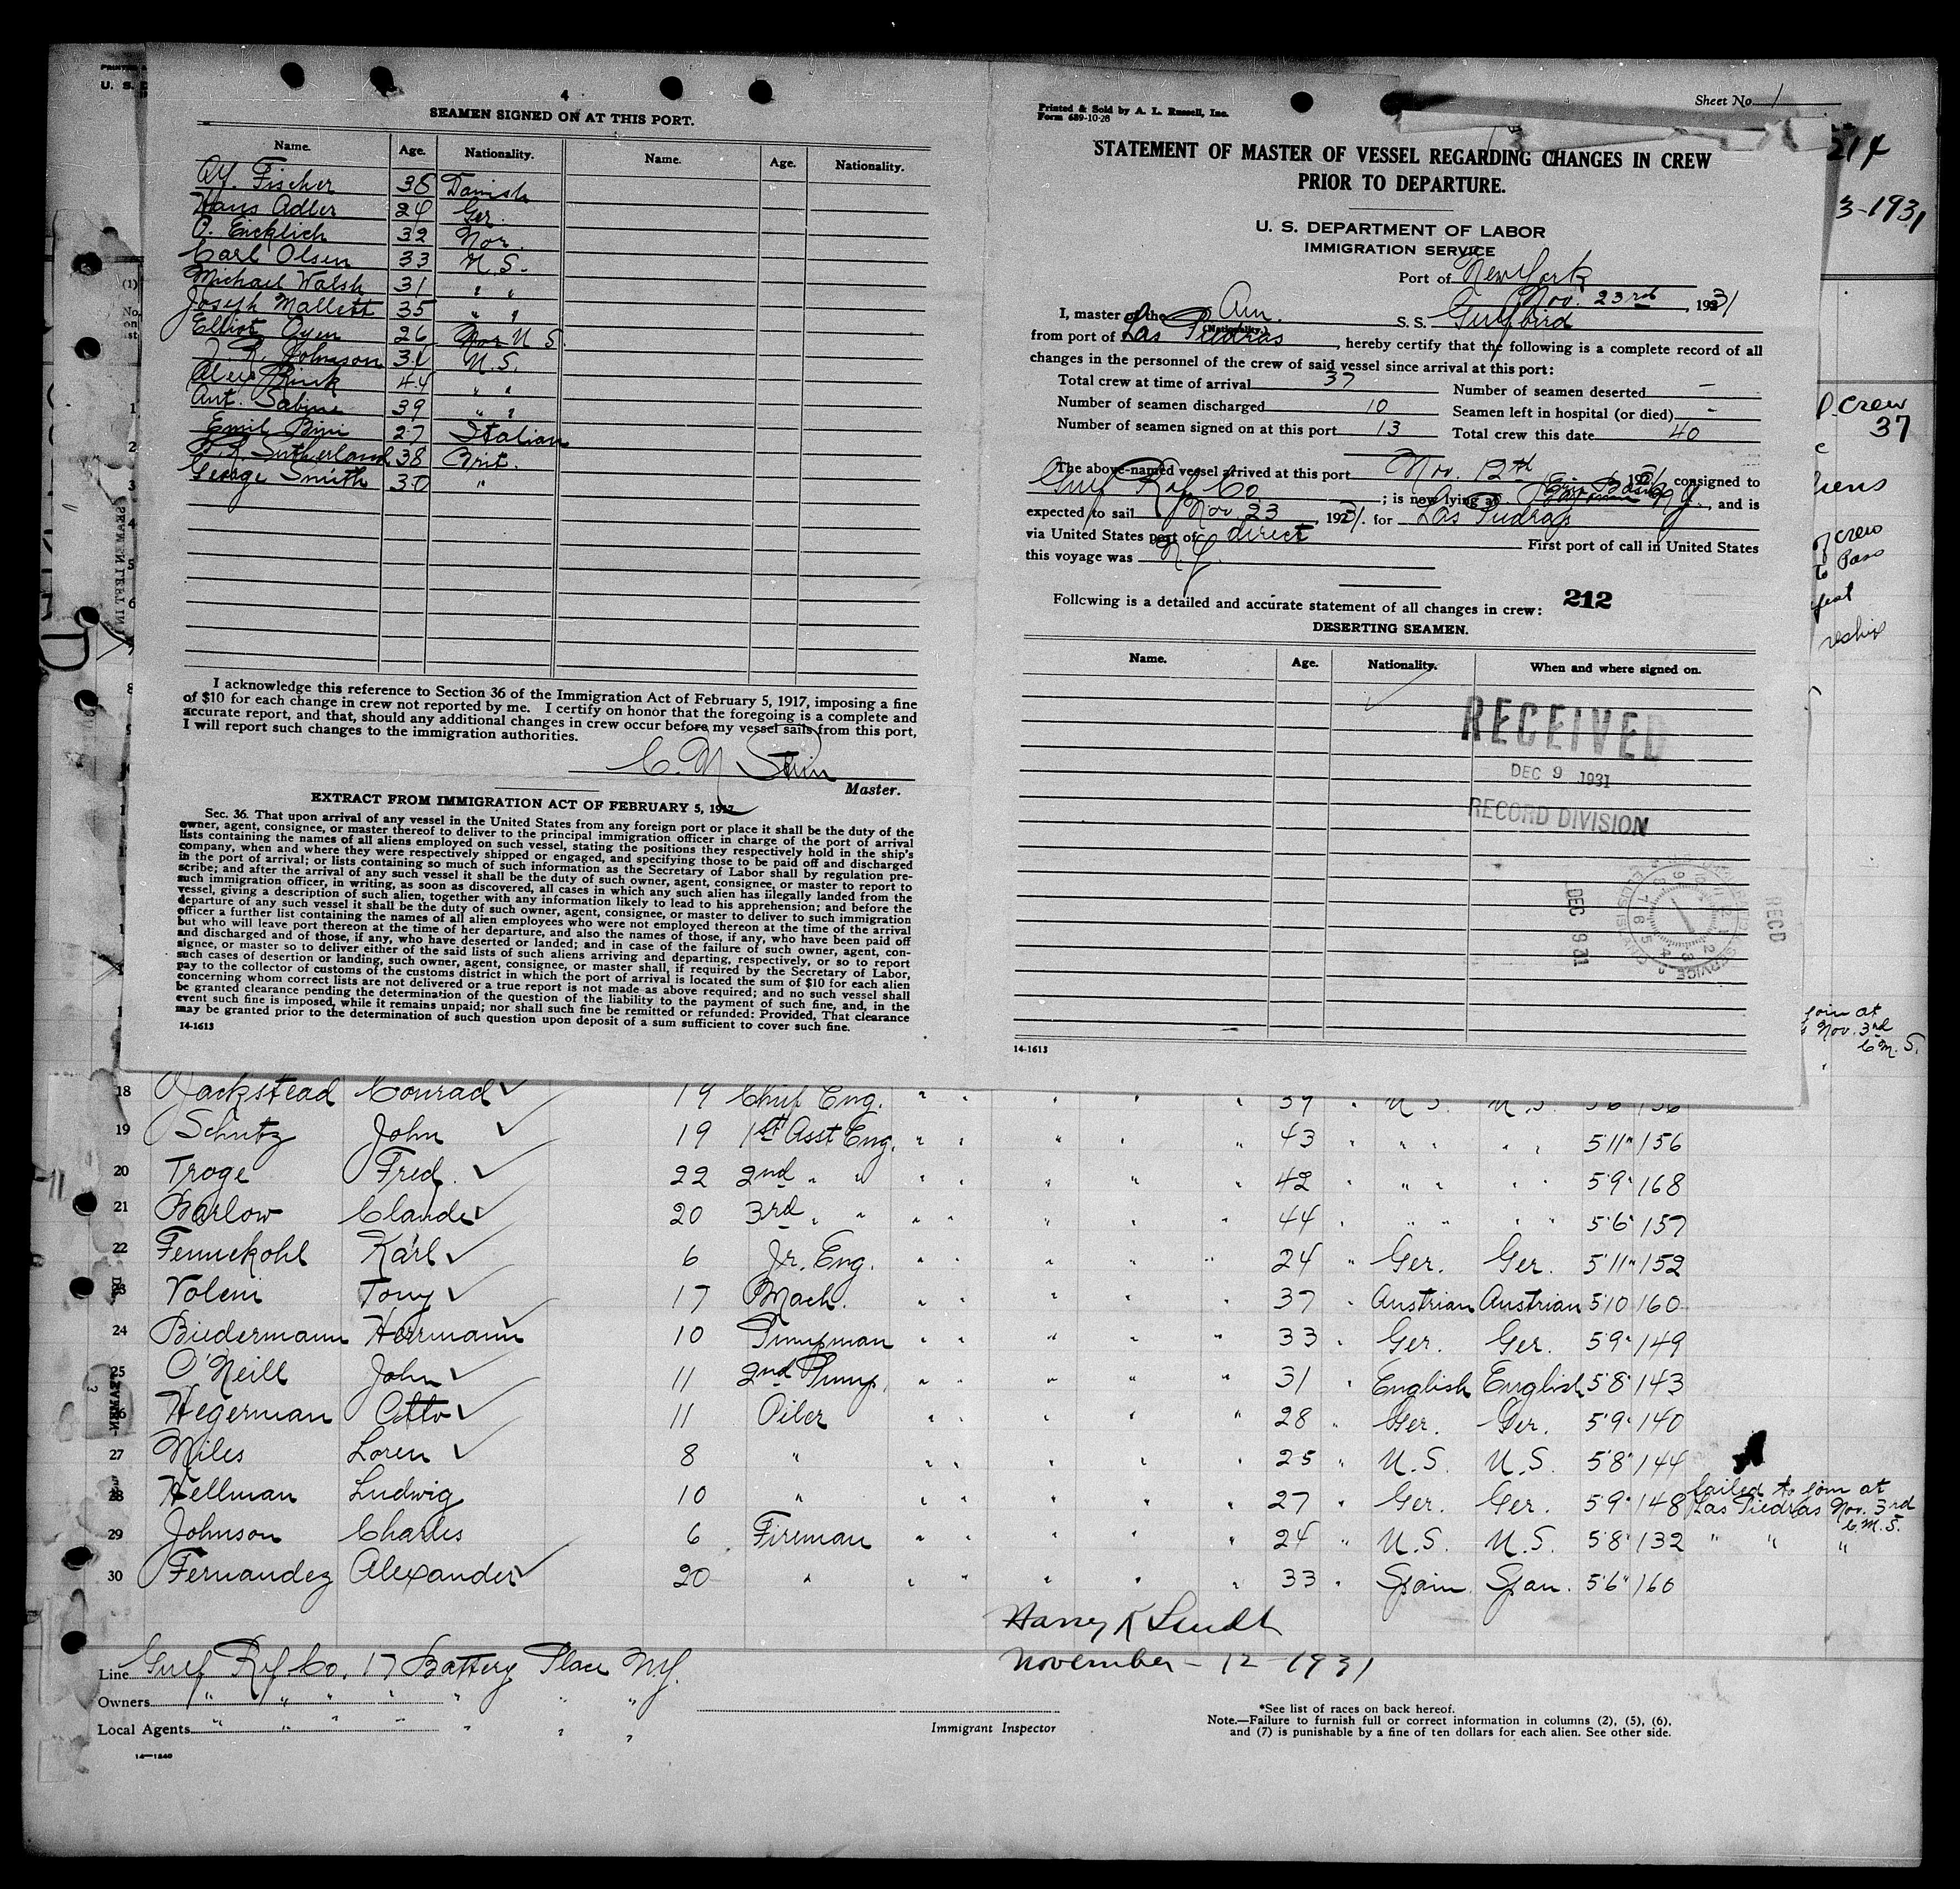 4
SEAMEN SIGNED ON AT THIS PORT.
Name. Age. Nationality. Name. Age. Nationality.
Fischer 38 Danish
Hans Adler 24 Ger.
32 Nor.
Carl Olsen 33 U.S.
Michael Walsh 31 " "
Joseph Mallett 35 " "
Elliot Oyen 26 U S.
Johnson U.S.
44 " "
Ant. Sabine 39 " "
Emil Bini 27 Italian
Sutherland 38 Brit.
George Smith 30 "
I acknowledge this reference to Section 36 of the Immigration Act of February 5, 1917, imposing a fine
of $10 for each change in crew not reported by me. I certify on honor that the foregoing is a complete and
accurate report, and that, should any additional changes in crew occur before my vessel sails from this port,
I will report such changes to the immigration authorities.
Master.
EXTRACT FROM IMMIGRATION ACT OF FEBRUARY 5, 1917
Sec. 36. That upon arrival of any vessel in the United States from any foreign port or place it shall be the duty of the
owner, agent, consignee, or master thereof to deliver to the principal immigration officer in charge of the port of arrival
lists containing the names of all aliens employed on such vessel, stating the positions they respectively hold in the ship's
company, when and where they were respectively shipped or engaged, and specifying those to be paid off and discharged
in the port of arrival; or lists containing so much of such information as the Secretary of Labor shall by regulation pre-
scribe; and after the arrival of any such vessel it shall be the duty of such owner, agent, consignee, or master to report to
such immigration officer, in writing, as soon as discovered, all cases in which any such alien has illegally landed from the
vessel, giving a description of such alien, together with any information likely to lead to his apprehension; and before the
departure of any such vessel it shall be the duty of such owner, agent, consignee, or master to deliver to such immigration
officer a further list containing the names of all alien employees who were not employed thereon at the time of the arrival
but who will leave port thereon at the time of her departure, and also the names of those, if any, who have been paid off
and discharged and of those, if any, who have deserted or landed; and in case of the failure of such owner, agent, con-
signee, or master so to deliver either of the said lists of such aliens arriving and departing, respectively, or so to report
such cases of desertion or landing, such owner, agent, consignee, or master shall, if required by the Secretary of Labor,
pay to the collector of customs of the customs district in which the port of arrival is located the sum of $10 for each alien
concerning whom correct lists are not delivered or a true report is not made as above required; and no such vessel shall
be granted clearance pending the determination of the question of the liability to the payment of such fine, and, in the
event such fine is imposed, while it remains unpaid; nor shall such fine be remitted or refunded: Provided, That clearance
may be granted prior to the determination of such question upon deposit of a sum sufficient to cover such fine.
14-1613
Printed & Sold by A. L. Russell, Inc.
Form 689-10-28
Sheet No. 1
STATEMENT OF MASTER OF VESSEL REGARDING CHANGES IN CREW
PRIOR TO DEPARTURE.
U. S. DEPARTMENT OF LABOR
IMMIGRATION SERVICE
Port of New York
Nov. 23rd, 1931
I, master of the Am. (Nationality.) S. S. Gulfbird
from port of Las Piedras, hereby certify that the following is a complete record of all
changes in the personnel of the crew of said vessel since arrival at this port:
Total crew at time of arrival 37 Number of seamen deserted -
Number of seamen discharged 10 Seamen left in hospital (or died) -
Number of seamen signed on at this port 13 Total crew this date 40
The above-named vessel arrived at this port Nov. 12th 1931 consigned to
Gulf Ref Co; is now lying at Erie Basin N.Y., and is
expected to sail Nov 23, 1931. for Las Piedras
via United States port of direct First port of call in United States
this voyage was N.Y.
Following is a detailed and accurate statement of all changes in crew: 212
DESERTING SEAMEN.
Name. Age. Nationality. When and where signed on.
RECEIVED
DEC 9 1931
RECORD DIVISION
DEC 9 31
RECD
14-1613
214
3-1931
crew
37
crew
Pass
join at
Nov. 3rd
C.M.S.
18 Conrad 19 Chief Eng. " " " " " 39 " U.S. U.S. 5'6" 156
19 Schutz John 19 1st Asst Eng. " " " " " 43 " " " " " 5'11" 156
20 Troge Fred. 22 2nd " " " " " " " 42 " " " " " 5'9" 168
21 Barlow Claude 20 3rd " " " " " " " 44 " " " " " 5'6" 157
22 Fennekohl Karl 6 Jr. Eng. " " " " " 24 " Ger. Ger. 5'11" 152
23 Voleni Tony 17 Mach. " " " " " 37 " Austrian Austrian 5'10 160
24 Biedermann Herrmann 10 Pumpman " " " " " 33 " Ger. Ger. 5'9" 149
25 O'Neill John 11 2nd Pump. " " " " " 31 " English English 5'8" 143
26 Hegerman Otto 11 Oiler " " " " " 28 " Ger. Ger. 5'9" 140
27 Niles Loren 8 " " " " " " 25 " U.S. U.S. 5'8" 144
28 Hellman Ludwig 10 " " " " " " 27 " Ger. Ger. 5'9" 148 failed to join at
Las Piedras Nov. 3rd
C.M.S.
29 Johnson Charles 6 Fireman " " " " " 24 " U.S. U.S. 5'8" 132 " " "
30 Fernandez Alexander 20 " " " " " " 33 " Spain Span. 5'6" 160
November - 12 - 1931
Line Gulf Ref Co. 17 Battery Place N.Y.
Owners " " " " " " "
Local Agents " " " " " " "
Immigrant Inspector
*See list of races on back hereof.
Note.—Failure to furnish full or correct information in columns (2), (5), (6),
and (7) is punishable by a fine of ten dollars for each alien. See other side.
14-1240